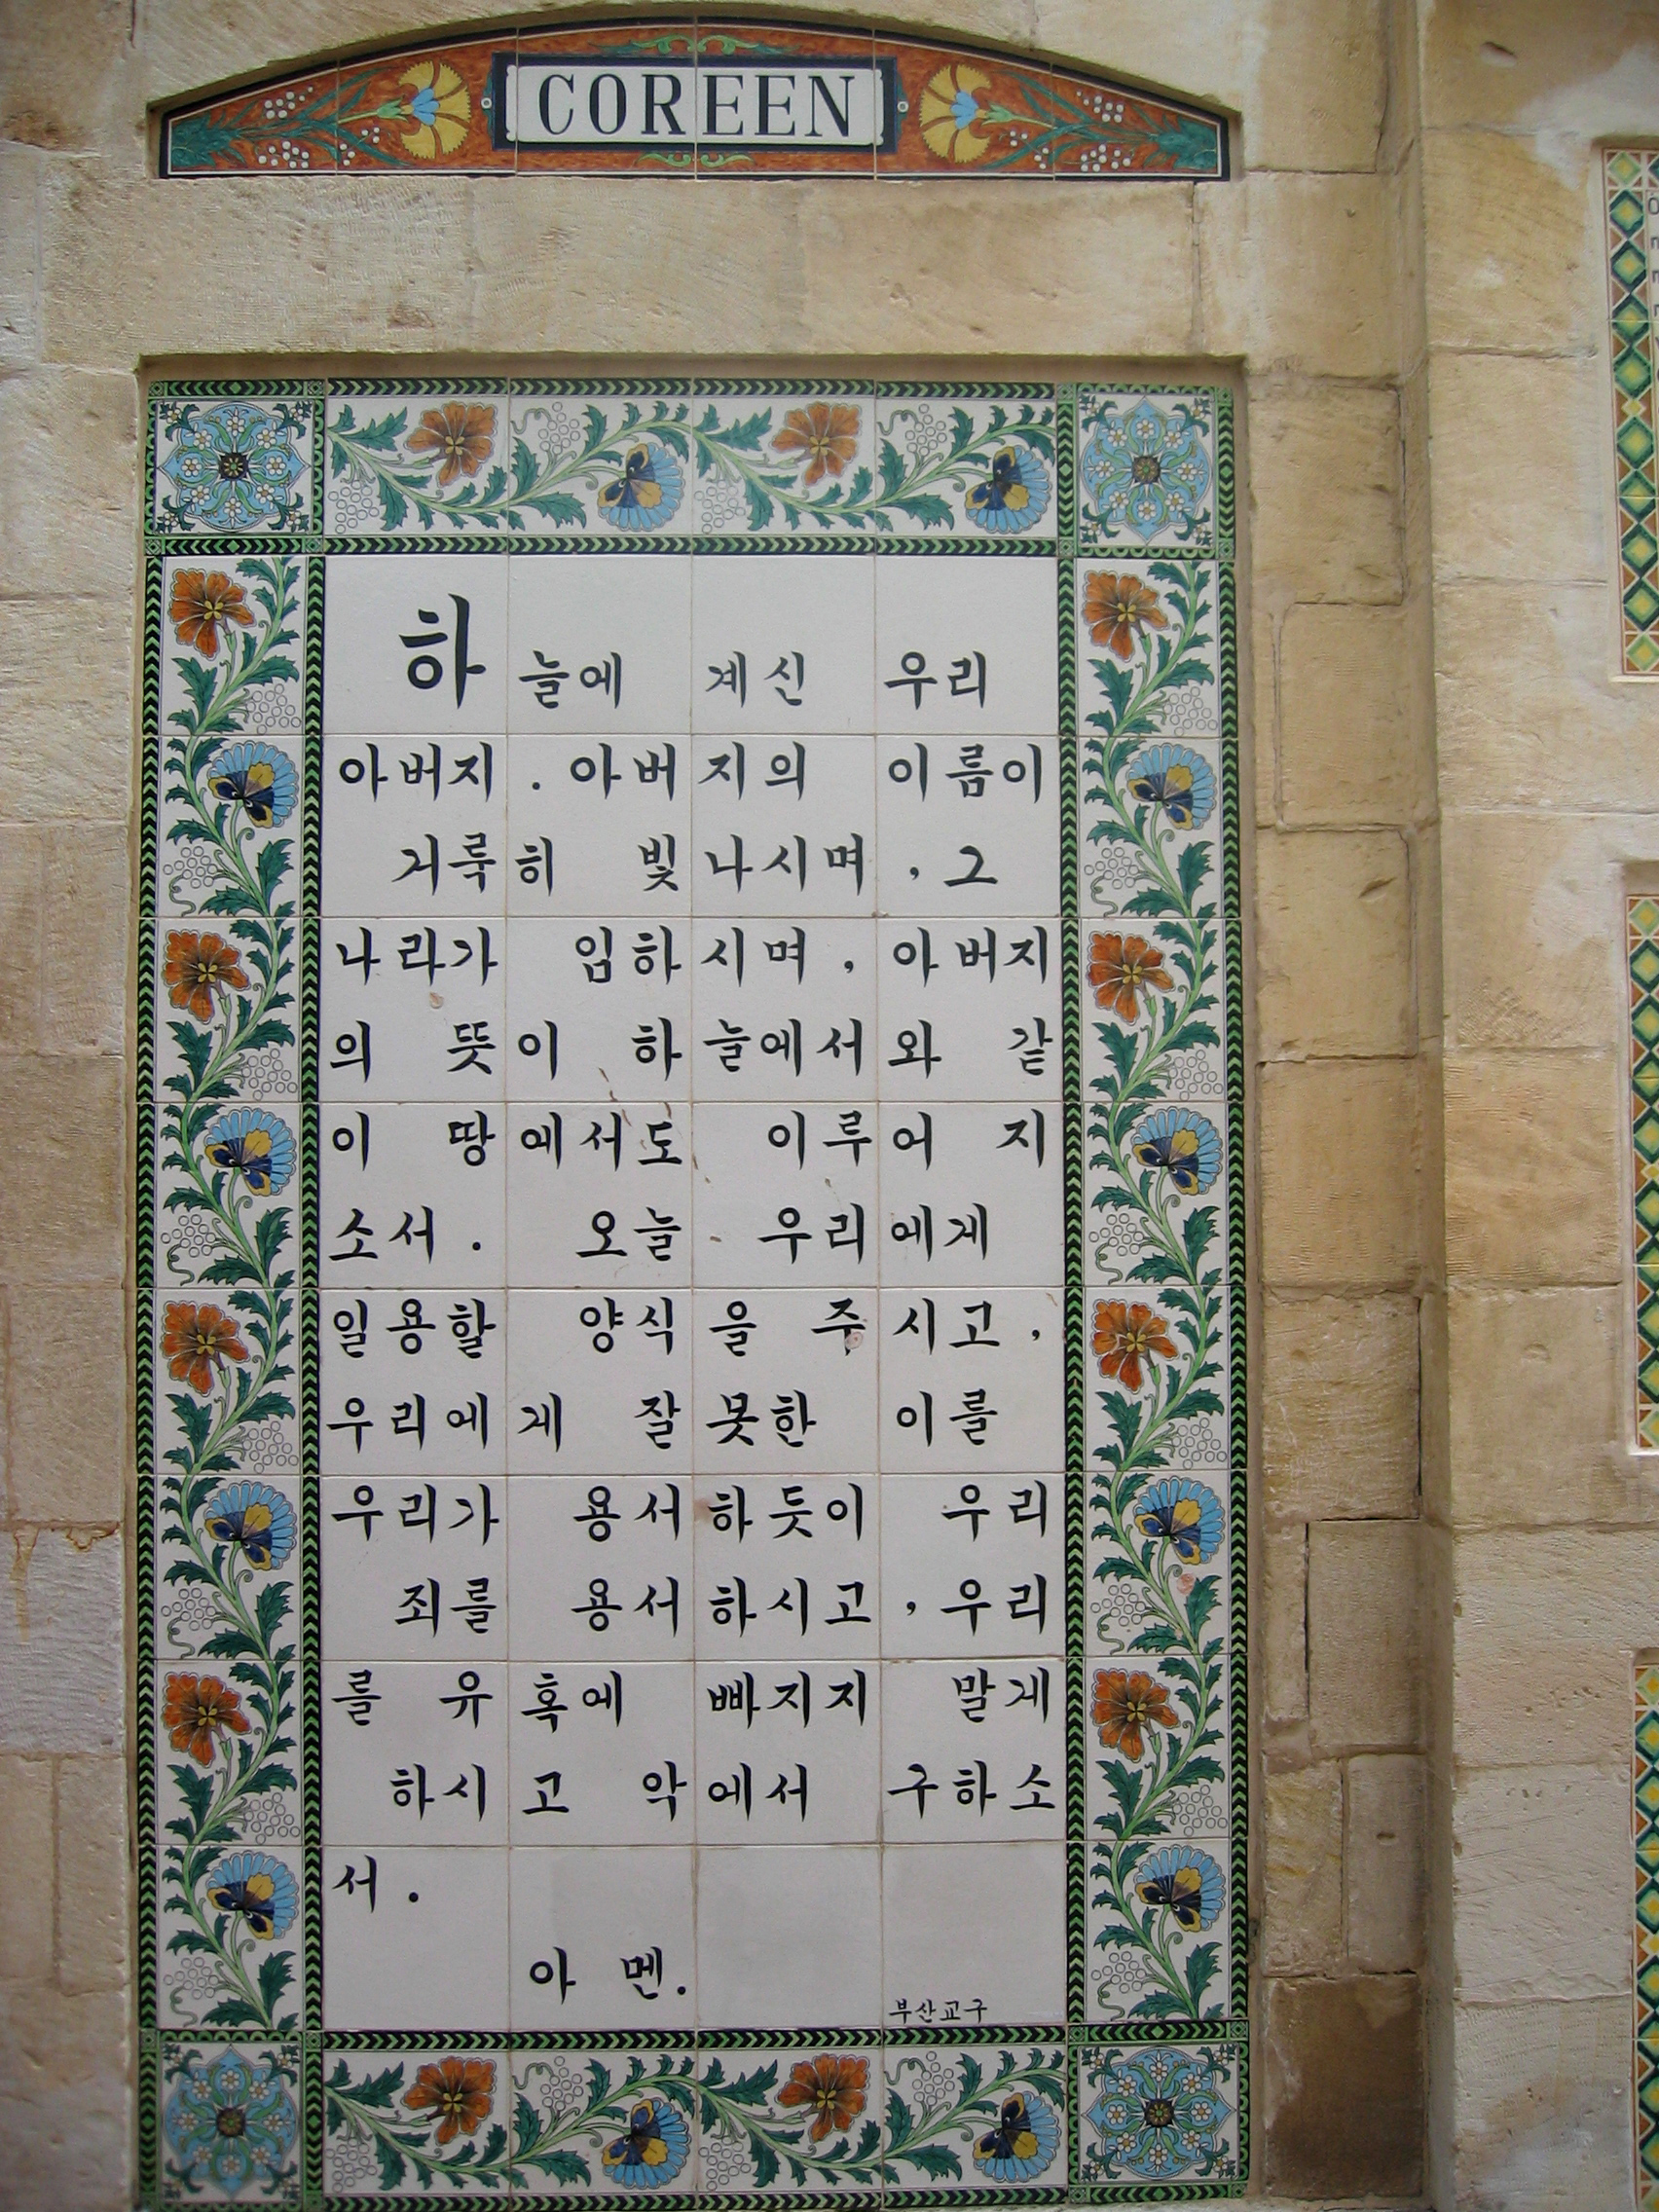 COREEN
하늘에 계신 우리
아버지. 아버지의 이름이
거룩히 빛나시며, 그
나라가 임하시며, 아버지
의 뜻이 하늘에서와 같
이 땅에서도 이루어 지
소서. 오늘 우리에게
일용할 양식을 주시고,
우리에게 잘못한 이를
우리가 용서하듯이 우리
죄를 용서하시고, 우리
를 유혹에 빠지지 말게
하시고 악에서 구하소
서.
아 멘.
부산교구